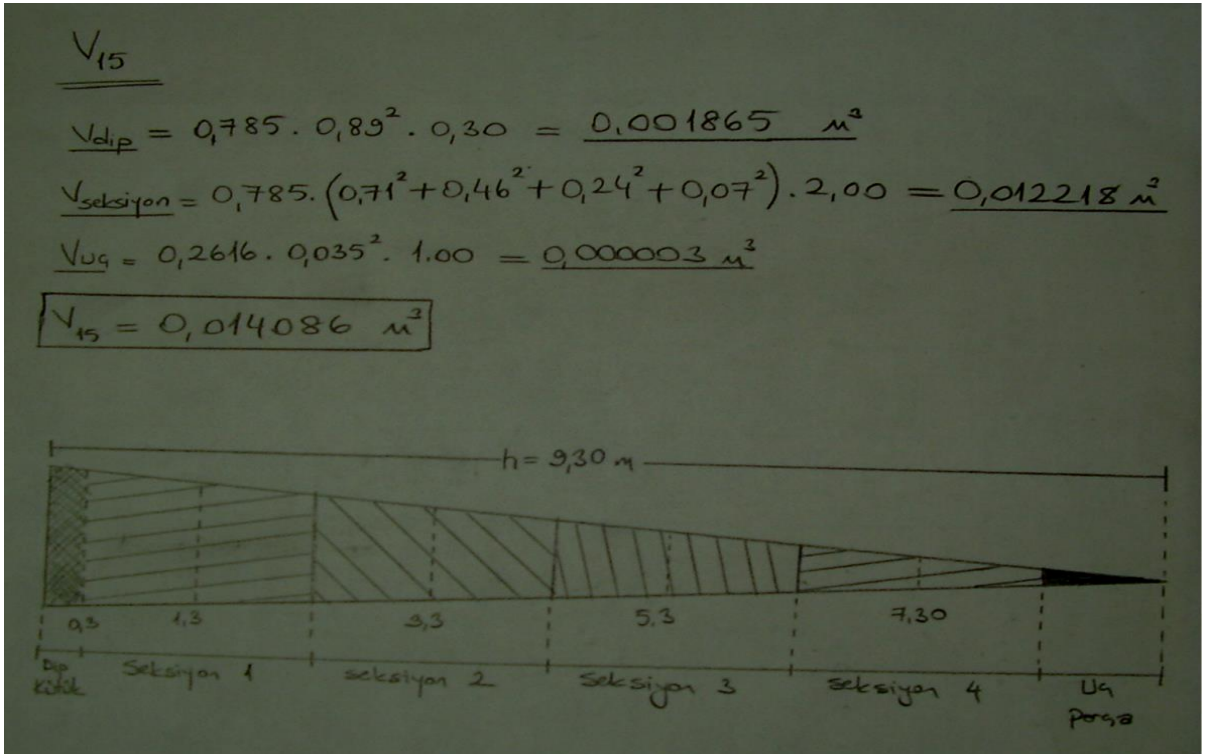 V₁₅
Vdip = 0,785 . 0,89² . 0,30 = 0.001865 м³
Vseksiyon = 0,785 . (0,71² + 0,46² + 0,24² + 0,07²) . 2,00 = 0,012218 м³
Vuç = 0,2616 . 0,035² . 1.00 = 0,000003 м³
V₁₅ = 0,014086 м³
h = 9,30 m
0,3 1,3 3,3 5,3 7,30
Dip Seksiyon 1 seksiyon 2 seksiyon 3 seksiyon 4 Uç
Kütük parça